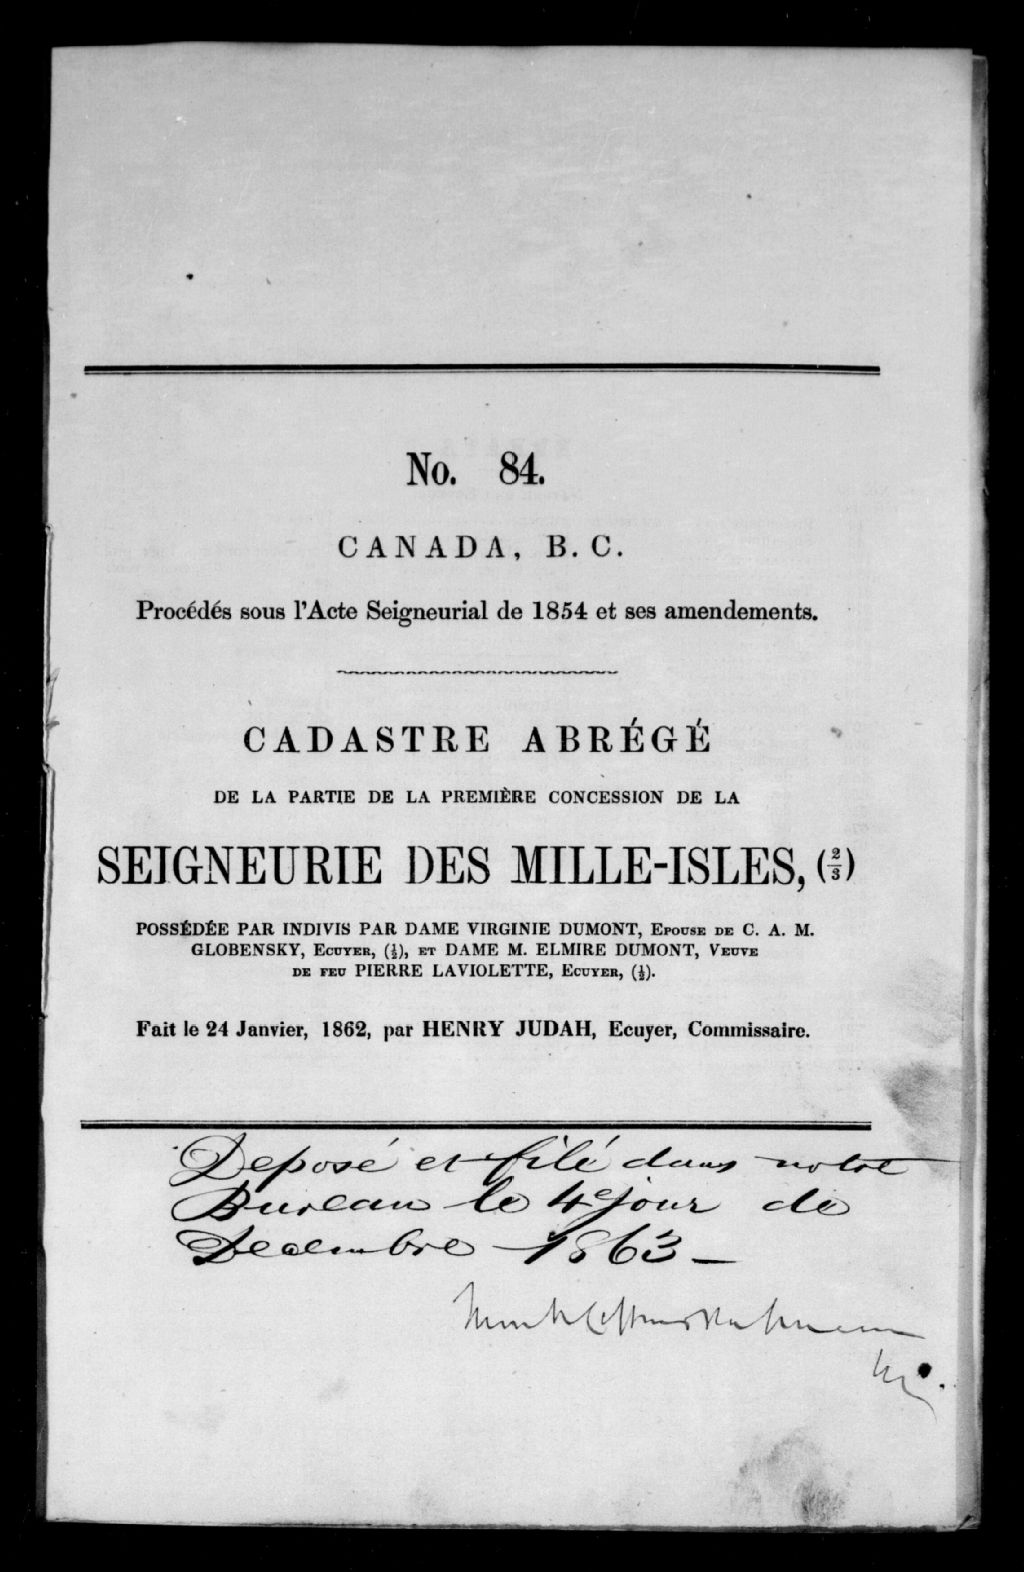 No. 84.
CANADA, B. C.
Procédés sous l'Acte Seigneurial de 1854 et ses amendements.
CADASTRE ABRÉGÉ
DE LA PARTIE DE LA PREMIÈRE CONCESSION DE LA
SEIGNEURIE DES MILLE-ISLES, (2/3)
POSSÉDÉE PAR INDIVIS PAR DAME VIRGINIE DUMONT, EPOUSE DE C. A. M.
GLOBENSKY, ECUYER, (½), ET DAME M. ELMIRE DUMONT, VEUVE
DE FEU PIERRE LAVIOLETTE, ECUYER, (½).
Fait le 24 Janvier, 1862, par HENRY JUDAH, Ecuyer, Commissaire.
Deposé et filé dans notre
Bureau le 4e jour de
Decembre 1863 —